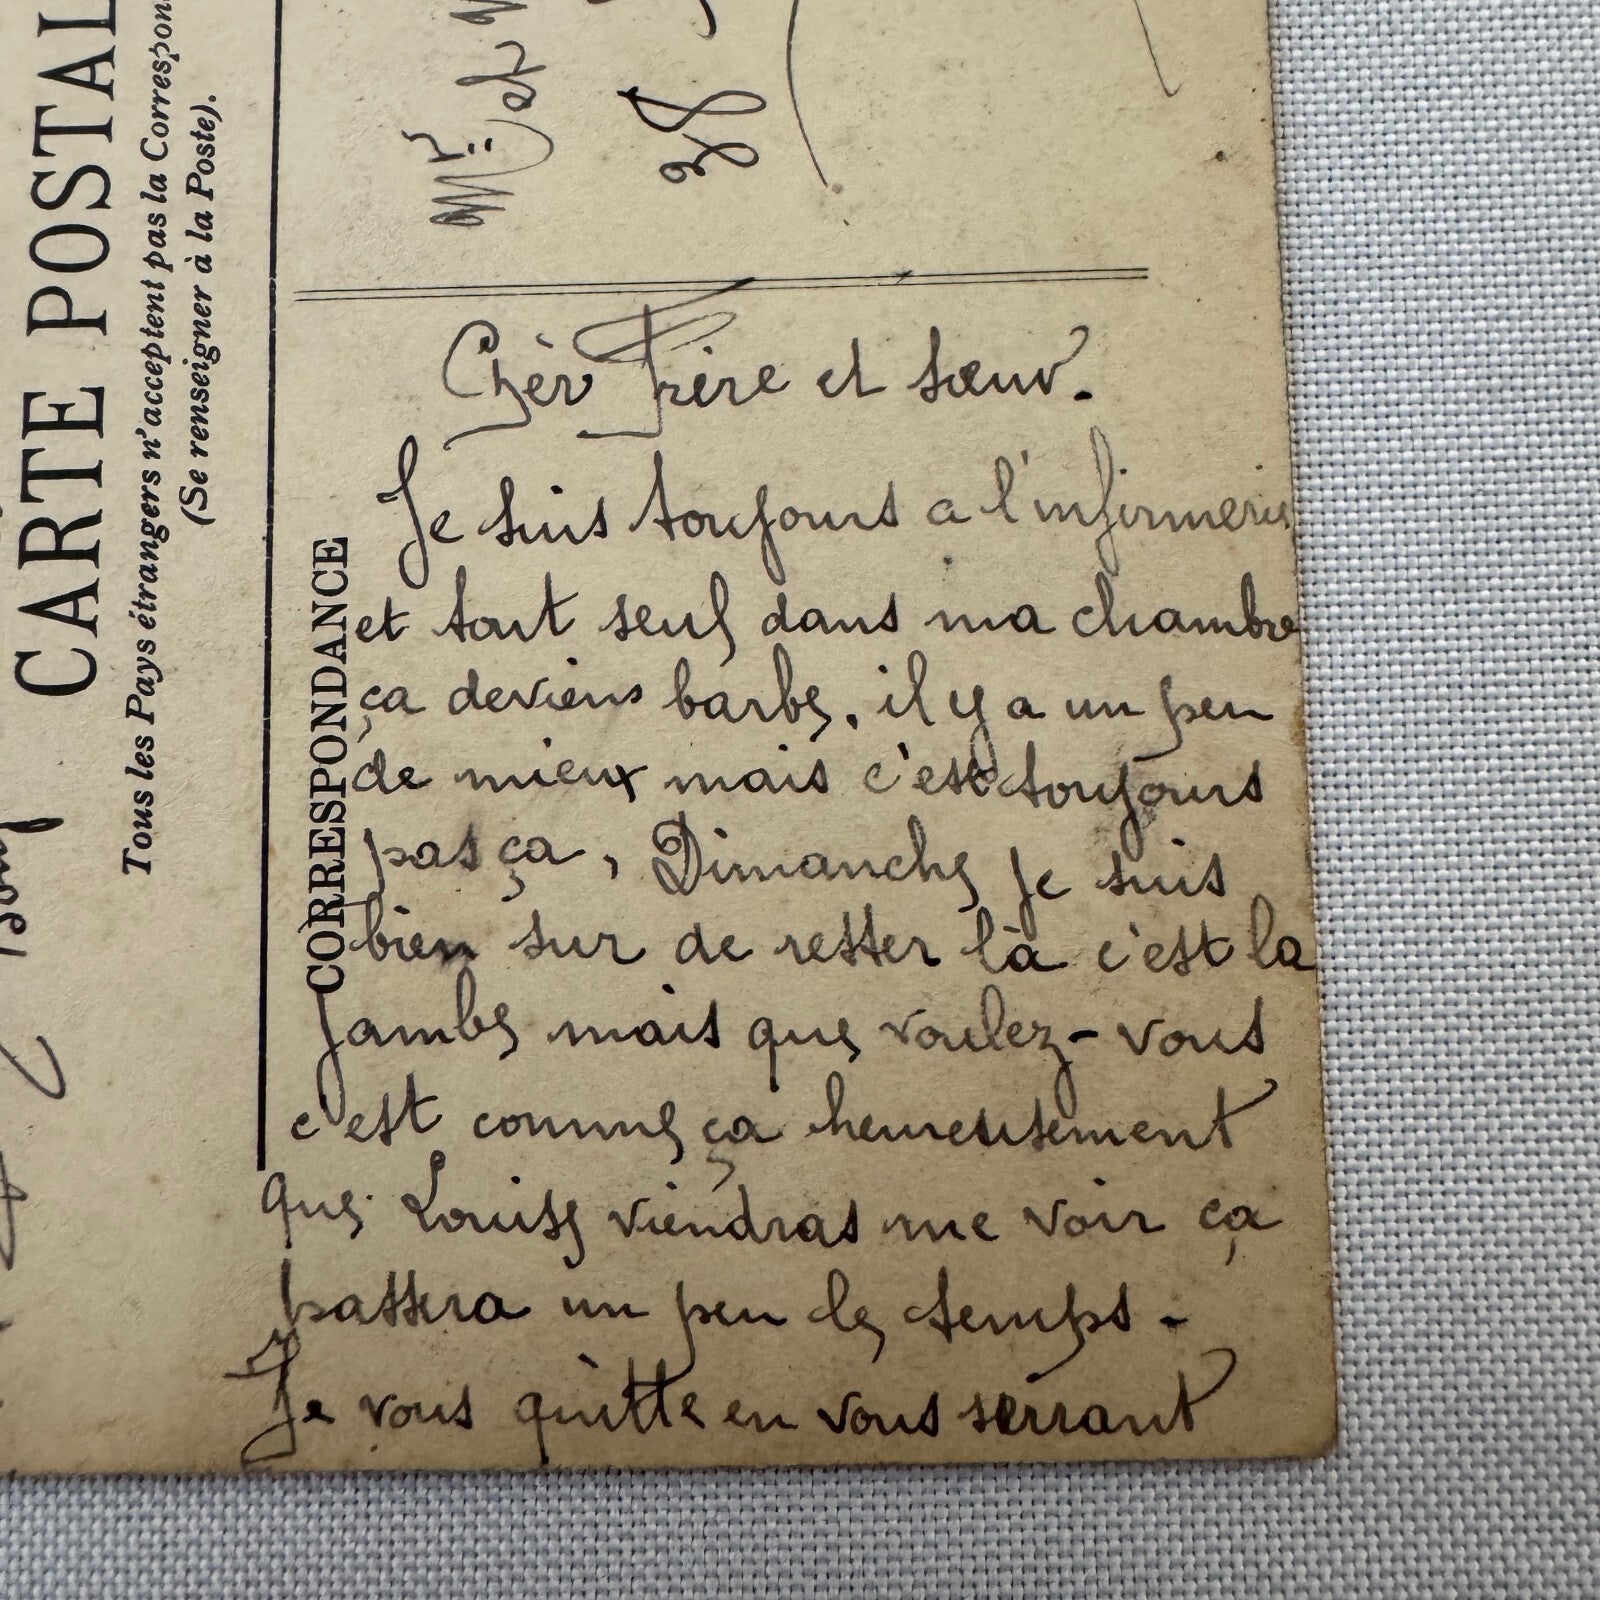 CARTE POSTAL
Tous les Pays étrangers n'acceptent pas la Correspon
(Se renseigner à la Poste).
CORRESPONDANCE
Mr
Chèr Frère et sœur.
Je suis toujours a l'infirmerie
et tout seul dans ma chambre
ça deviens barbe, il y a un peu
de mieux mais c'est toujours
pas ça, Dimanche je suis
bien sur de rester là c'est la
jambe mais que voulez-vous
c'est comme ça heureusement
que Louise viendras me voir ça
passera un peu le temps.
Je vous quitte en vous serrant